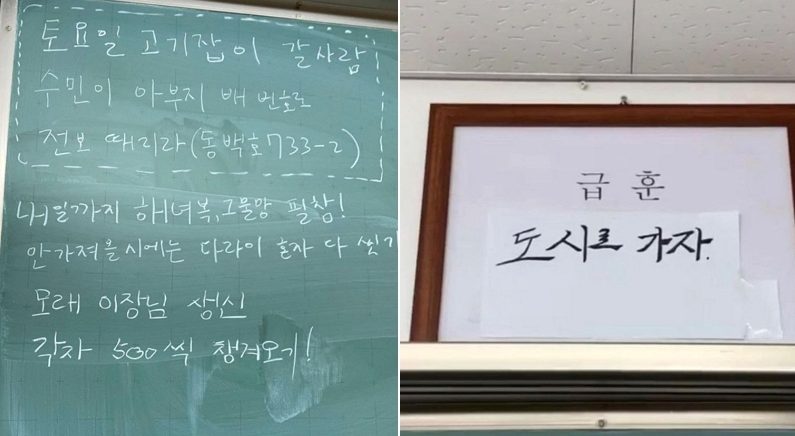 토요일 고기잡이 갈사람
수민이 아부지 배 번호로
전보 때리라(동백호733-2)
내일까지 해녀복,그물망 필참!
안가져올시에는 다라이 혼자 다 씻기
모레 이장님 생신
각자 500씩 챙겨오기!
급훈
도시로 가자.